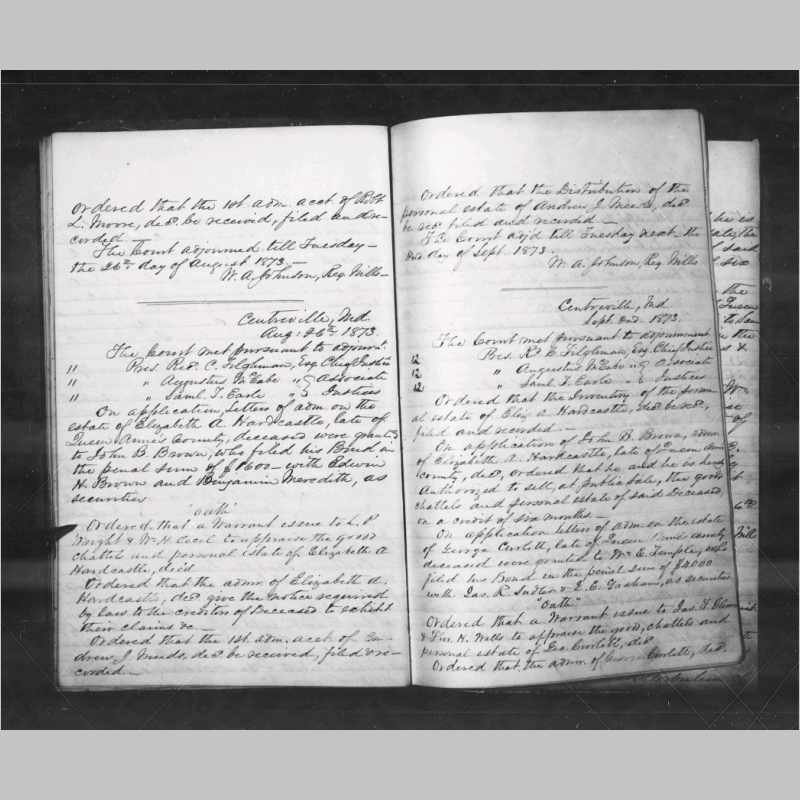 Ordered that the 1st. adm. acct. of Robt
L. Moore, decd. be received, filed and re-
corded —
The Court adjourned till Tuesday —
the 26th day of August 1873. —
W. A. Johnson, Reg. Wills —
Centreville, Md.
Aug. 26th 1873.
The Court met pursuant to adjournt.
11 Pres. Rd. C. Tilghman, Esq. Chief Justice
11 " Augustus McCabe " Associate
11 " Saml. T. Earle " Justices
On application, letters of adm. on the
estate of Elizabeth A. Hardcastle, late of
Queen Anne's County, deceased were granted
to John B. Brown, who filed his Bond in
the penal sum of $1600 — with Edwin
H. Brown and Benjamin Meredith, as
securities
"Oath"
Ordered that a Warrant issue to L. P.
Wright & Wm. H. Cecil to appraise the goods
chattels and personal estate of Elizabeth A.
Hardcastle, decd
Ordered that the admr. of Elizabeth A.
Hardcastle, decd give the notice required
by law to the creditors of Deceased to exhibit
their claims &c —
Ordered that the 1st. adm. acct. of An-
drew J. Meeds, decd be received, filed & re-
corded —
Ordered that the Distribution of the
personal estate of Andrew J. Meeds, decd
be recd filed and recorded —
The Court adjd till Tuesday next the
2nd day of Sept. 1873.
W. A. Johnson, Reg. Wills
Centreville, Md
Sept. 2nd 1873.
The Court met pursuant to adjournment
12 Pres. Rd. C. Tilghman, Esq. Chief Justice
12 " Augustus McCabe " Associate
12 " Saml. T. Earle " Justices
Ordered that the Inventory of the person-
al estate of Eliz. A. Hardcastle, decd be recd,
filed and recorded —
On application of John B. Brown, admr.
of Elizabeth A. Hardcastle, late of Queen Anne's
County, decd, ordered that he and he is hereby
authorized to sell, at public sale, the goods
chattels and personal estate of said Deceased,
on a credit of six months —
On application letters of adm. on the estate
of George Curlett, late of Queen Anne's County
deceased were granted to Wm. E. Temple, who
filed his Bond in the penal sum of $2000
with Jas. R. &. C. Graham, as securities
"Oath"
Ordered that a Warrant issue to Jas. H.
& H. Watts to appraise the goods, chattels and
personal estate of Geo. Curlett, decd
Ordered that the admr. of George Curlett, decd.